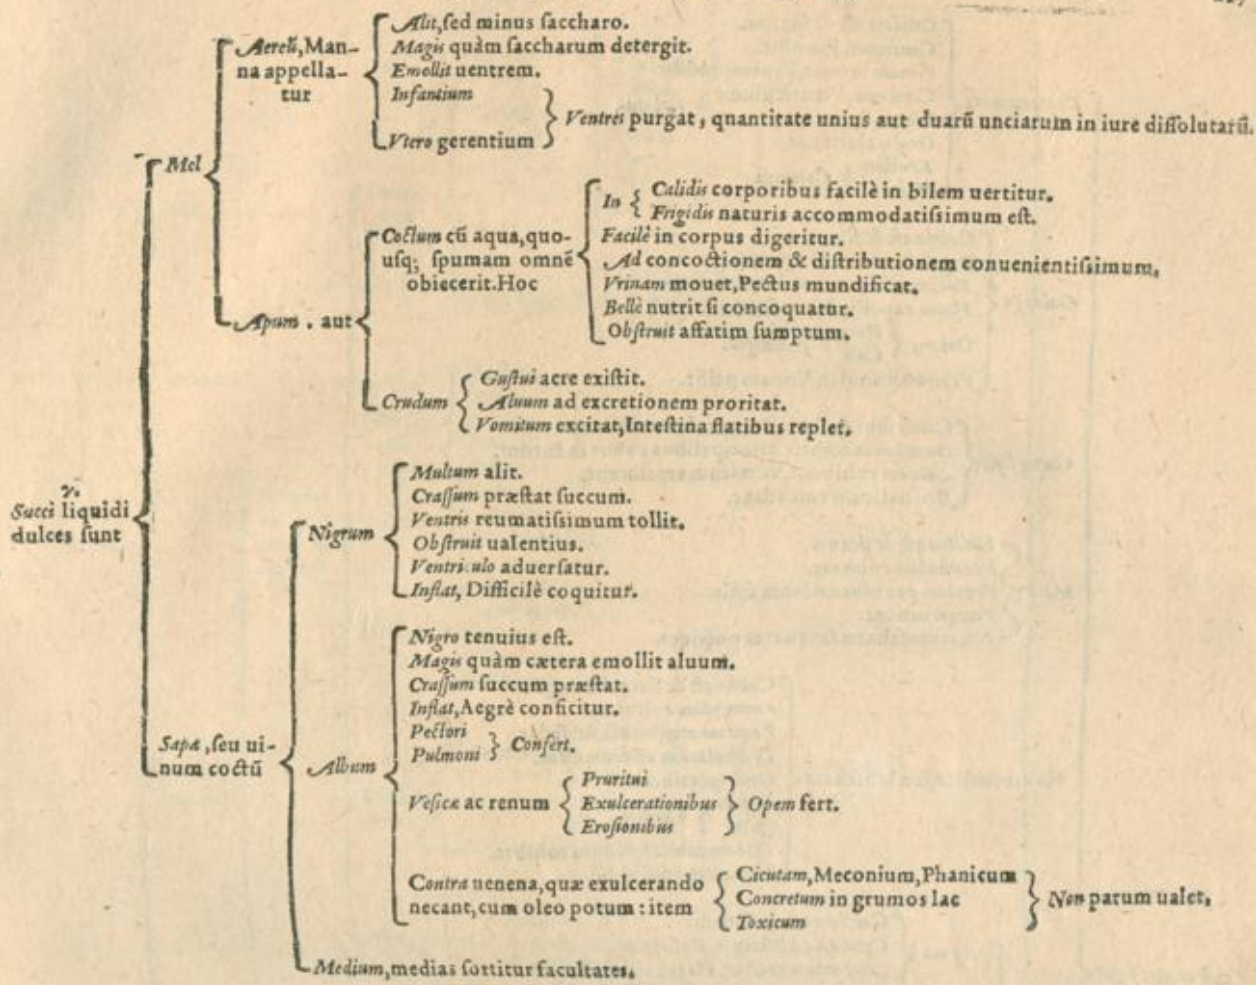 Aereũ, Man-
na appella-
tur
Alit, sed minus saccharo.
Magis quàm saccharum detergit.
Emollit uentrem.
Infantium
Vtero gerentium
Ventrẽs purgat, quantitate unius aut duarũ unciarum in iure dissolutarũ.
Mel
Apum, aut
Coctum cũ aqua, quo-
usq; spumam omnẽ
obiecerit. Hoc
In
Calidis corporibus facilè in bilem uertitur.
Frigidis naturis accommodatissimum est.
Facilè in corpus digeritur.
Ad concoctionem & distributionem conuenientissimum.
Vrinam mouet, Pectus mundificat.
Bellè nutrit si concoquatur.
Obstruit affatim sumptum.
Crudum
Gustui acre existit.
Aluum ad excretionem proritat.
Vomitum excitat, Intestina flatibus replet.
Succi liquidi
dulces sunt
Sapa, seu ui-
num coctũ
Nigrum
Multum alit.
Crassum præstat succum.
Ventris reumatissimum tollit.
Obstruit ualentius.
Ventriculo aduersatur.
Inflat, Difficilè coquitur.
Album
Nigro tenuius est.
Magis quàm cætera emollit aluum.
Crassum succum præstat.
Inflat, Aegrè conficitur.
Pectori
Pulmoni
Confert.
Vesicæ ac renum
Pruritui
Exulcerationibus
Erosionibus
Opem fert.
Contra uenena, quæ exulcerando
necant, cum oleo potum : item
Cicutam, Meconium, Phanicum
Concretum in grumos lac
Toxicum
Non parum ualet.
Medium, medias sortitur facultates.